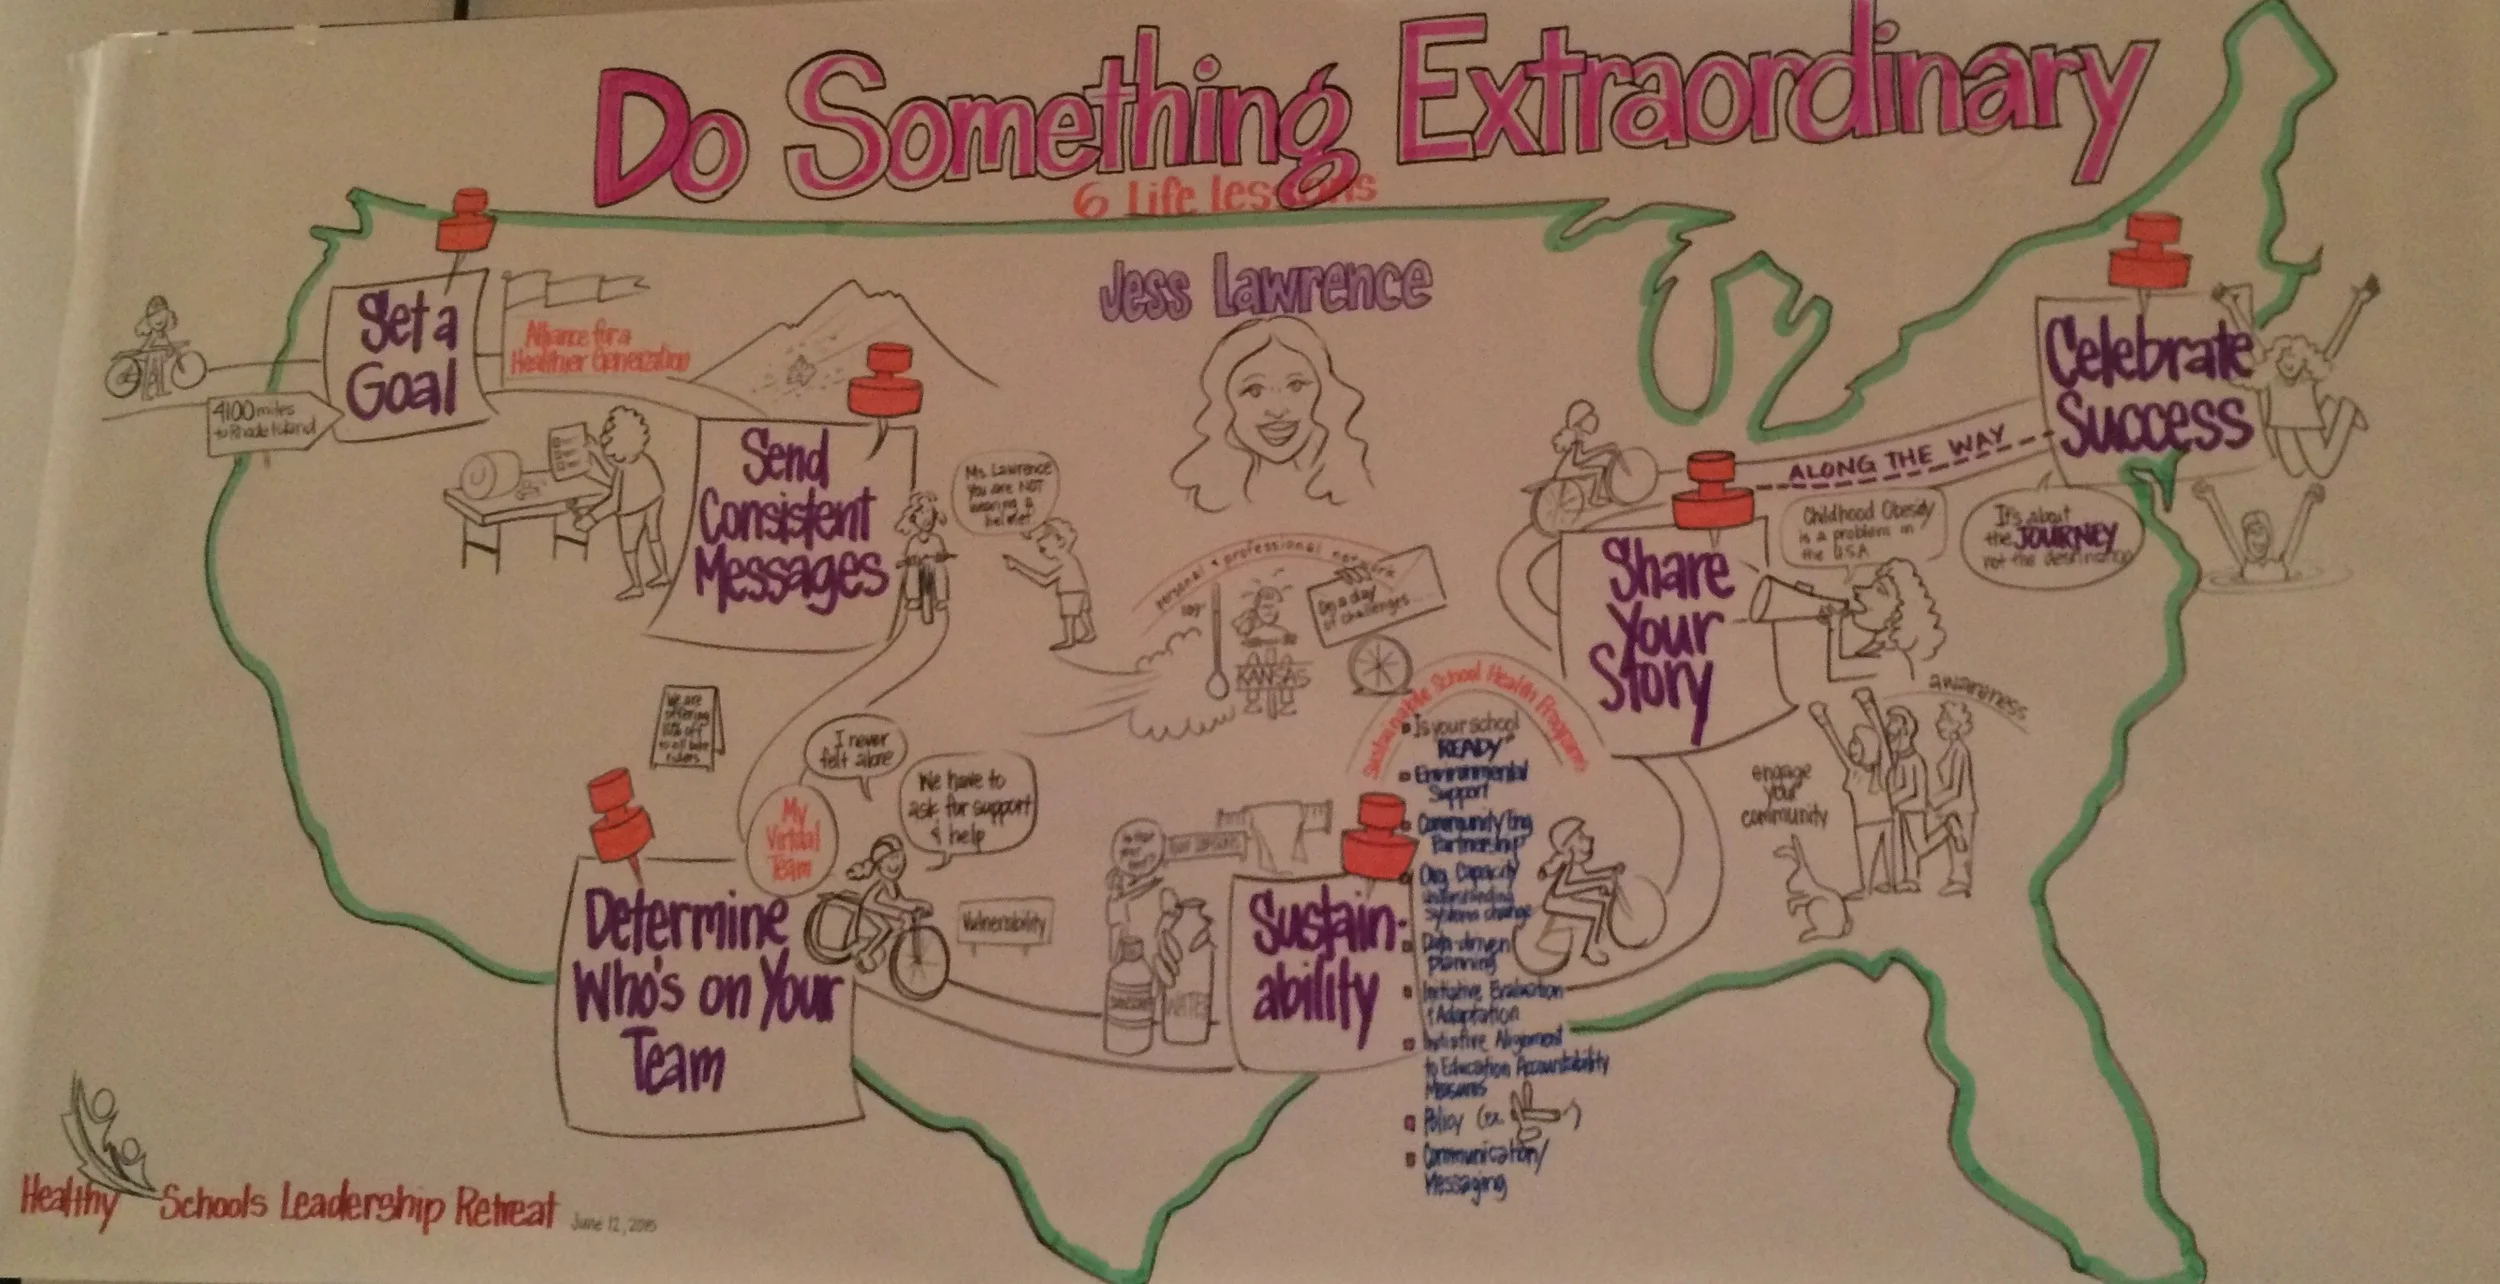 Do Something Extraordinary
6 Life lessons
Jess Lawrence
Set a
Goal
4100 miles
to Rhode Island
Alliance for a
Healthier Generation
Send
Consistent
Messages
Ms. Lawrence
You are NOT
wearing a
helmet
We are
offering
10% off
to all bike
riders
Determine
Who's on Your
Team
My
Virtual
Team
I never
felt alone
We have to
ask for support
& help
Vulnerability
personal & professional network
109°
KANSAS
On a day
of challenges...
WATER
Sustain-
ability
Sustainable School Health Programs
Is your school
"READY"
Environmental
Support
Community Eng
Partnership
Org. Capacity
understanding
systems change
Data-driven
planning
Initiative Evaluation
& Adaptation
Initiative Alignment
to Education Accountability
Measures
Policy (ex.
Communication/
Messaging
Share
Your
Story
Childhood Obesity
is a problem in
the USA
awareness
engage
your
community
ALONG THE WAY
Celebrate
Success
It's about
the JOURNEY
not the destination
Healthy Schools Leadership Retreat
June 12, 2015